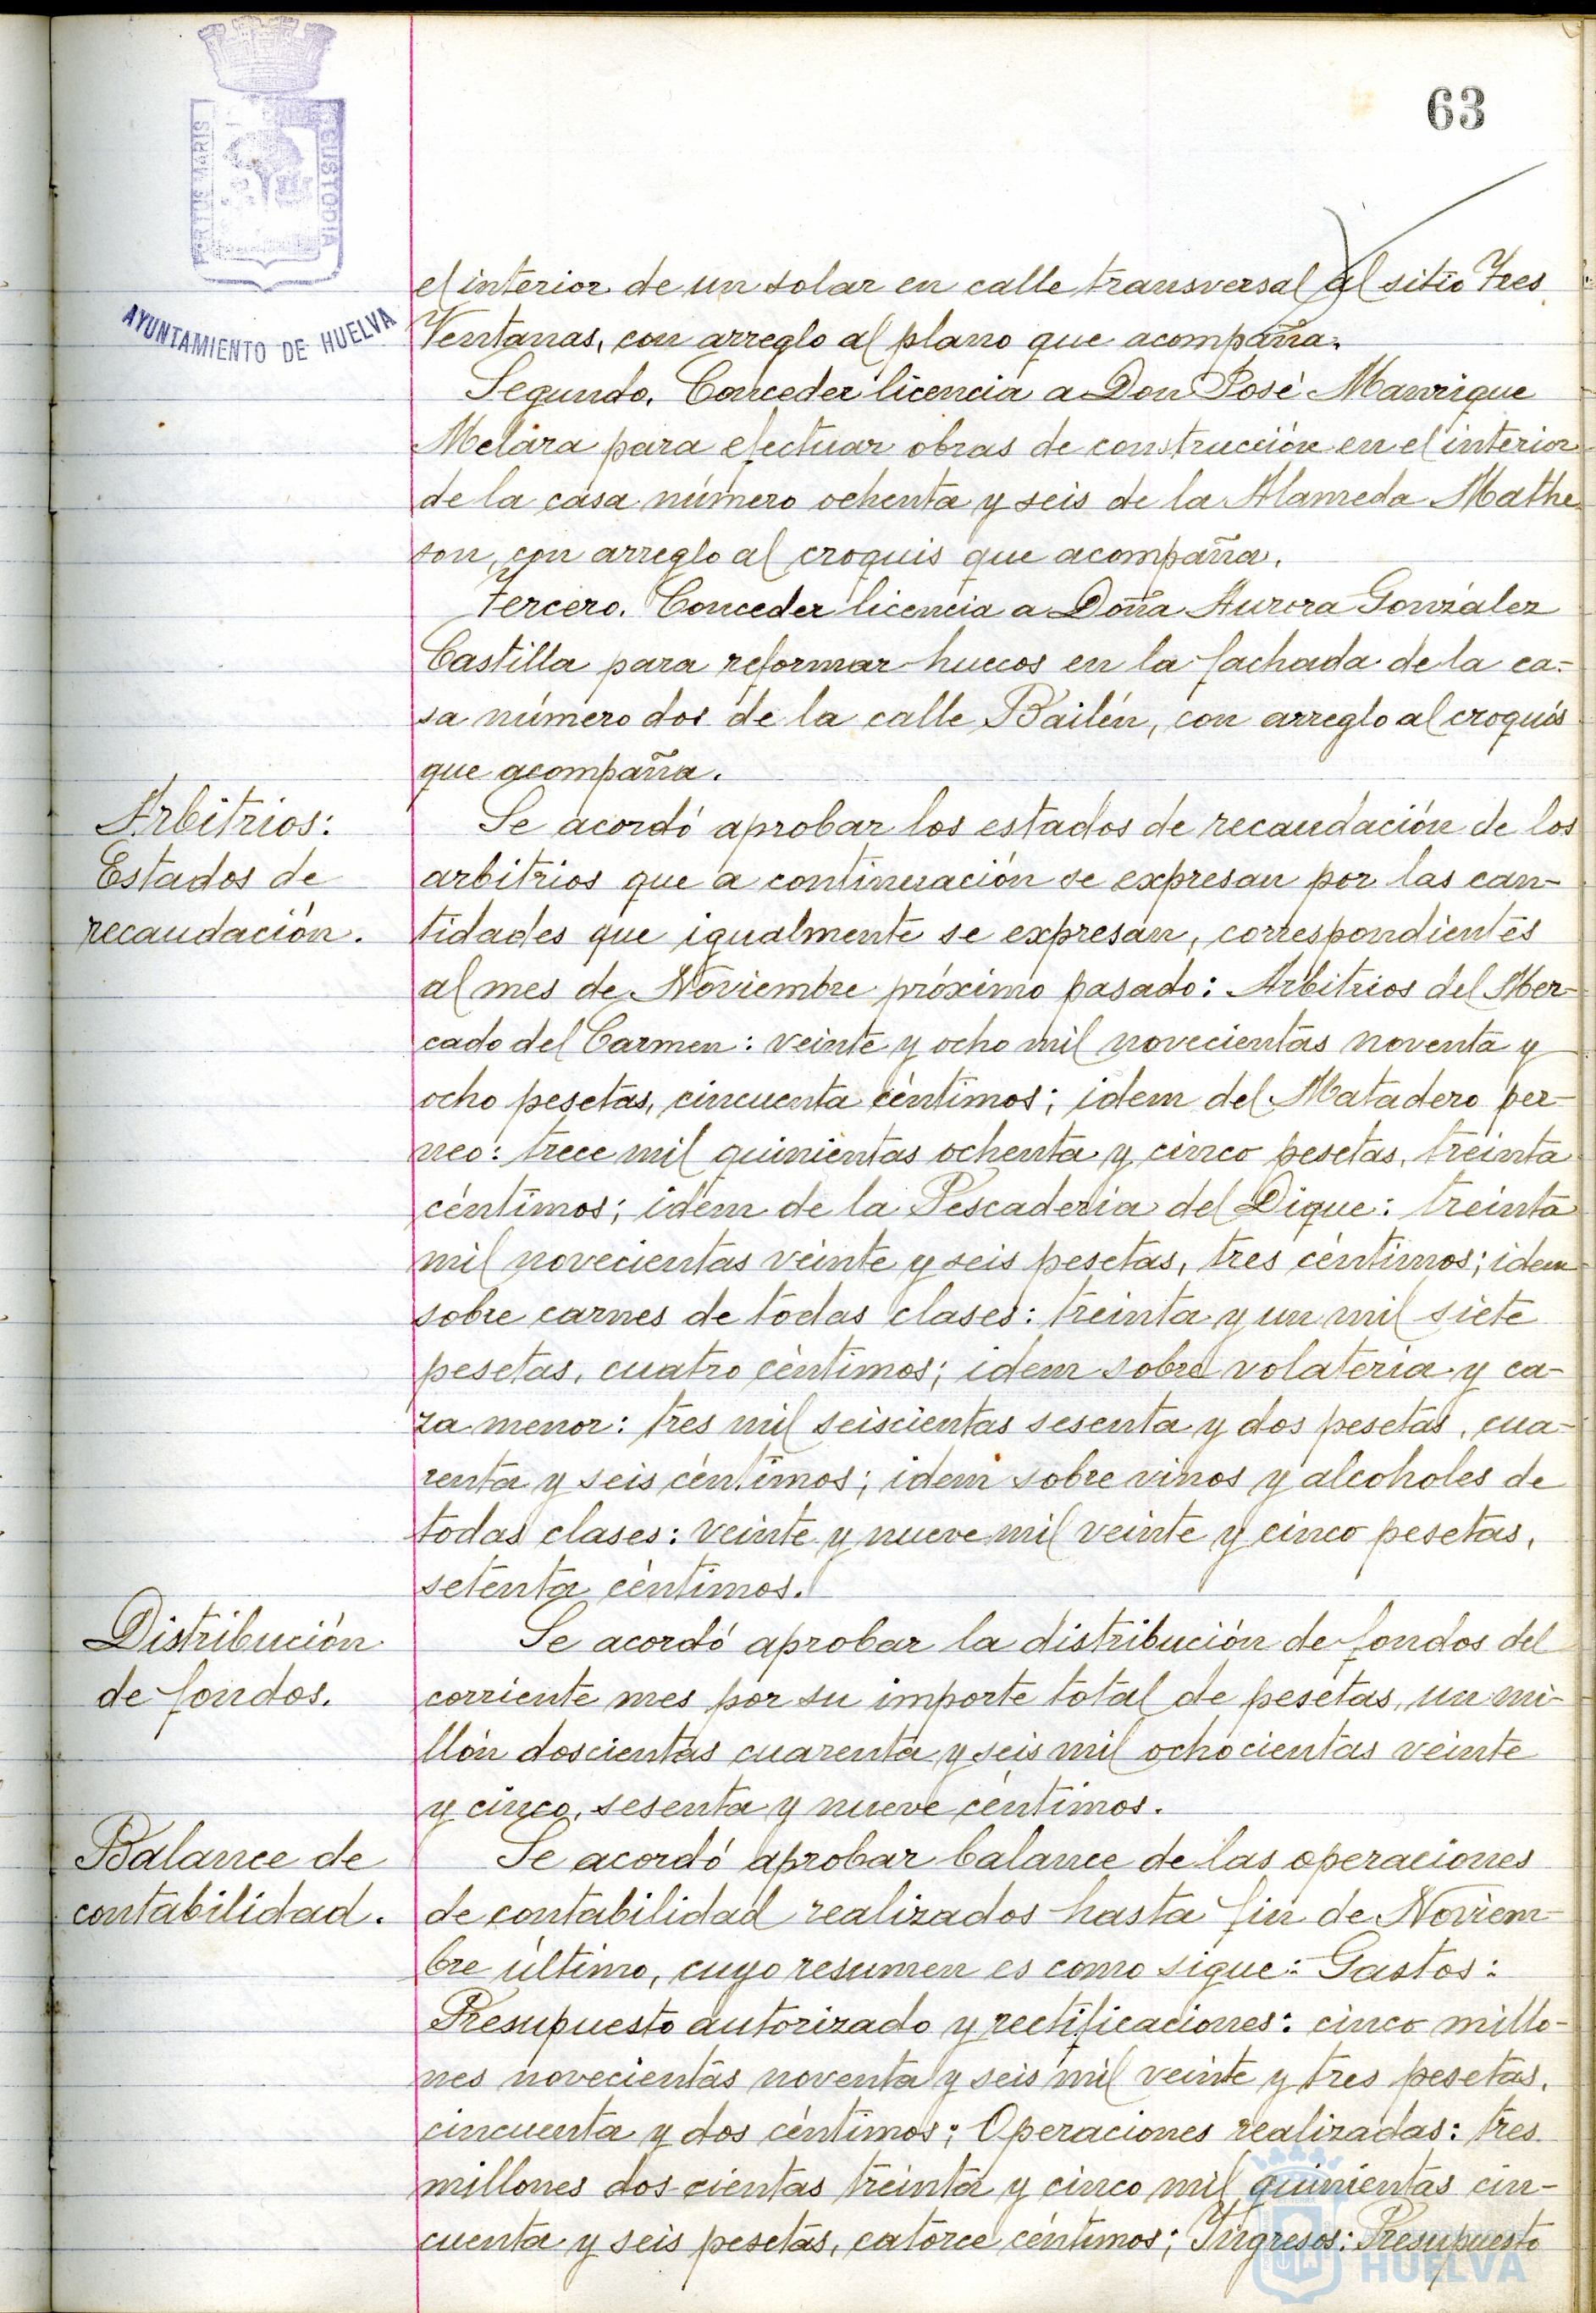 PORTUS MARIS
ET TERRAE CUSTODIA
AYUNTAMIENTO DE HUELVA
63
el interior de un solar en calle transversal al sitio Tres
Ventanas, con arreglo al plano que acompaña.
Segundo. Conceder licencia a Don José Manrique
Melara para efectuar obras de construcción en el interior
de la casa número ochenta y seis de la Alameda Mathe
son, con arreglo al croquis que acompaña.
Tercero. Conceder licencia a Doña Aurora González
Castilla para reformar huecos en la fachada de la ca-
sa número dos de la calle Bailén, con arreglo al croquis
que acompaña.
Arbitrios:
Estados de
recaudación.
Se acordó aprobar los estados de recaudación de los
arbitrios que a continuación se expresan por las can-
tidades que igualmente se expresan, correspondientes
al mes de Noviembre próximo pasado: Arbitrios del Mer-
cado del Carmen: veinte y ocho mil novecientas noventa y
ocho pesetas, cincuenta céntimos; idem del Matadero per-
neo: trece mil quinientas ochenta y cinco pesetas, treinta
céntimos; idem de la Pescadería del Dique: treinta
mil novecientas veinte y seis pesetas, tres céntimos; idem
sobre carnes de todas clases: treinta y un mil siete
pesetas, cuatro céntimos; idem sobre volatería y ca-
za menor: tres mil seiscientas sesenta y dos pesetas, cua-
renta y seis céntimos; idem sobre vinos y alcoholes de
todas clases: veinte y nueve mil veinte y cinco pesetas,
setenta céntimos.
Distribución
de fondos.
Se acordó aprobar la distribución de fondos del
corriente mes por su importe total de pesetas, un mi-
llón doscientas cuarenta y seis mil ochocientas veinte
y cinco, sesenta y nueve céntimos.
Balance de
contabilidad.
Se acordó aprobar balance de las operaciones
de contabilidad realizados hasta fin de Noviem-
bre último, cuyo resumen es como sigue: Gastos:
Presupuesto autorizado y rectificaciones: cinco millo-
nes novecientas noventa y seis mil veinte y tres pesetas,
cincuenta y dos céntimos; Operaciones realizadas: tres
millones dos cientas treinta y cinco mil quinientas cin-
cuenta y seis pesetas, catorce céntimos; Ingresos: Presupuesto
HUELVA